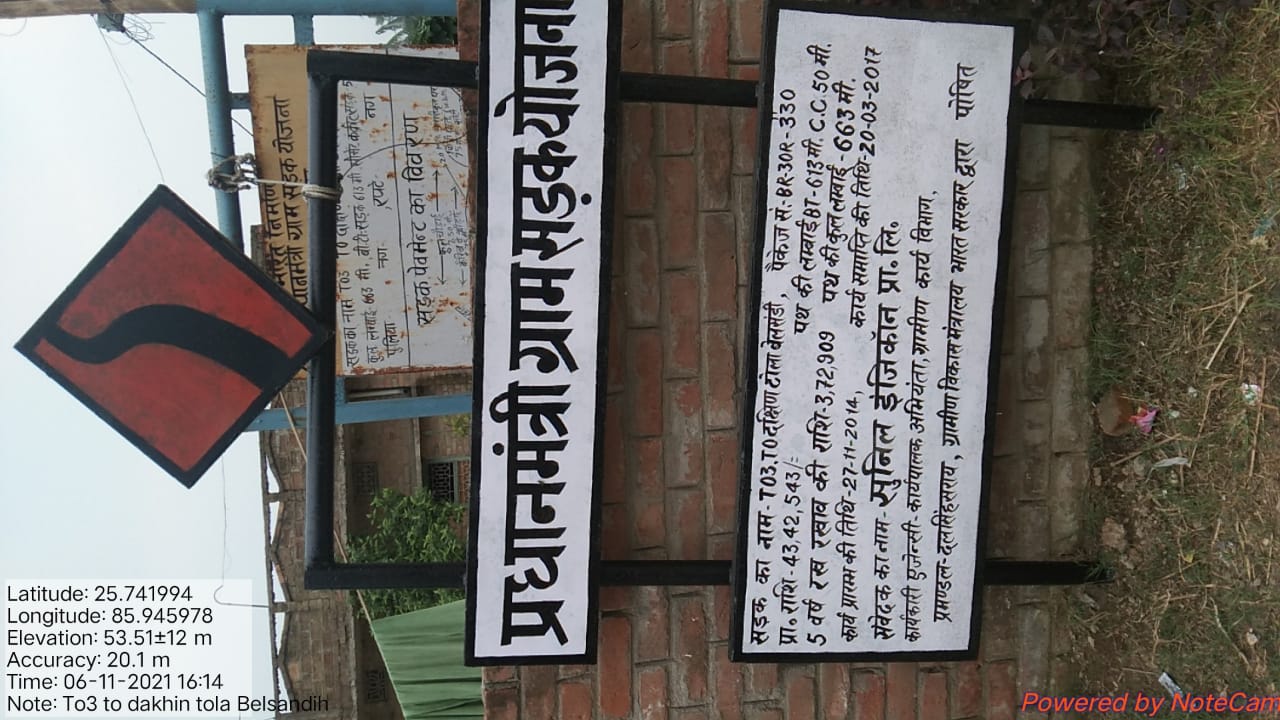 प्रधानमंत्री ग्राम सड़क योजना
सड़क का नाम- T03.TO दक्षिण टोला बेलसंडी, पैकेज सं:- BR-30R-330
प्रा॰ राशि- 43,42,543/= पथ की लम्बाई BT-613मी. C.C. 50 मी.
5 वर्ष रख रखाव की राशि-3,72,909 पथ की कुल लम्बाई -663 मी.
कार्य प्रारम्भ की तिथि-27-11-2014, कार्य समाप्ति की तिथि-20-03-2017
संवेदक का नाम- सुनिल इंजिकॉन प्रा.लि.
कार्यकारी एजेन्सी- कार्यपालक अभियंता, ग्रामीण कार्य विभाग,
प्रमण्डल-दलसिंहसराय, ग्रामीण विकास मंत्रालय भारत सरकार द्वारा पोषित
ग्राम सड़क योजना
सड़क का नाम T03 TO
कुल लम्बाई- 663 मी, बी.टी. सड़क 613 मी
पुलिया नग. रुपटे. नग
सड़क पेवमेन्ट का विवरण
Latitude: 25.741994
Longitude: 85.945978
Elevation: 53.51±12 m
Accuracy: 20.1 m
Time: 06-11-2021 16:14
Note: To3 to dakhin tola Belsandih
Powered by NoteCam